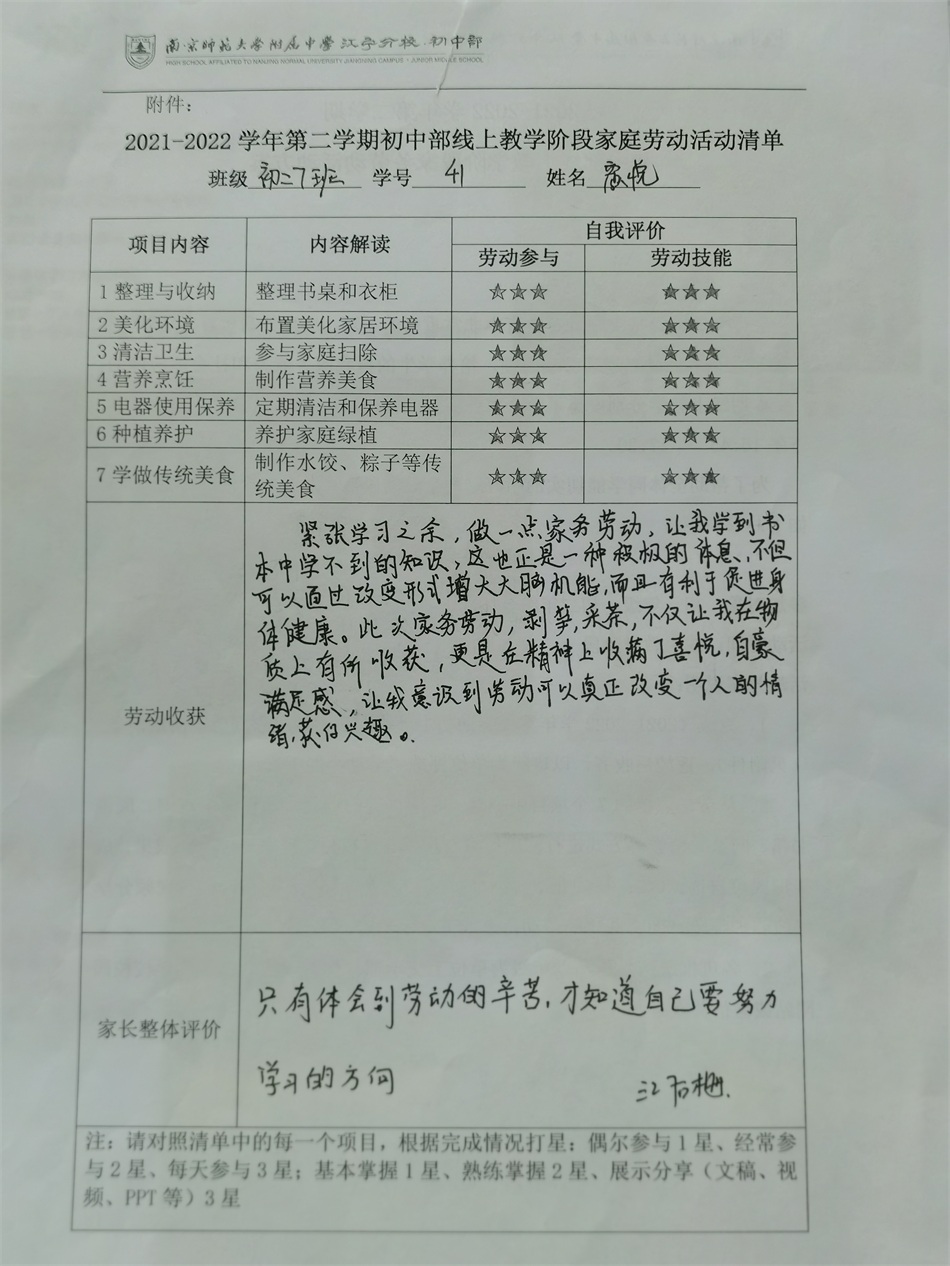 南京师范大学附属中学江宁分校·初中部
HIGH SCHOOL AFFILIATED TO NANJING NORMAL UNIVERSITY JIANGNING CAMPUS · JUNIOR MIDDLE SCHOOL
附件：
2021-2022 学年第二学期初中部线上教学阶段家庭劳动活动清单
班级 初二7班 学号 41 姓名 悦
项目内容 内容解读 自我评价
劳动参与 劳动技能
1 整理与收纳 整理书桌和衣柜 ☆☆☆ ★★★
2 美化环境 布置美化家居环境 ★★★ ★★★
3 清洁卫生 参与家庭扫除 ★★★ ★★★
4 营养烹饪 制作营养美食 ★★★ ★★★
5 电器使用保养 定期清洁和保养电器 ★★★ ★★★
6 种植养护 养护家庭绿植 ★★★ ★★★
7 学做传统美食 制作水饺、粽子等传 ☆☆☆ ★★★
统美食
劳动收获
紧张学习之余，做一点家务劳动，让我学到书
本中学不到的知识，这也正是一种积极的休息，不但
可以通过改变形式增大大脑机能，而且有利于促进身
体健康。此次家务劳动，剥笋，采茶，不仅让我在物
质上有所收获，更是在精神上收获了喜悦，自豪
满足感，让我意识到劳动可以真正改变一个人的情
绪，获得兴趣。
家长整体评价
只有体会到劳动的辛苦，才知道自己要努力
学习的方向
注：请对照清单中的每一个项目，根据完成情况打星：偶尔参与 1 星、经常参
与 2 星、每天参与 3 星；基本掌握 1 星、熟练掌握 2 星、展示分享（文稿、视
频、PPT 等）3 星